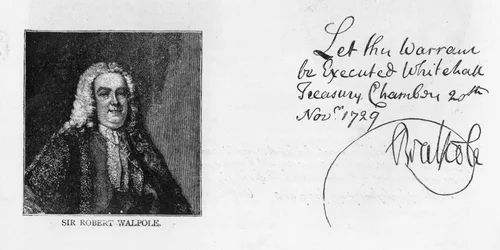 SIR ROBERT WALPOLE.
Let this Warrant
be Executed Whitehall
Treasury Chamber 20th
Novr. 1729
RWalpole